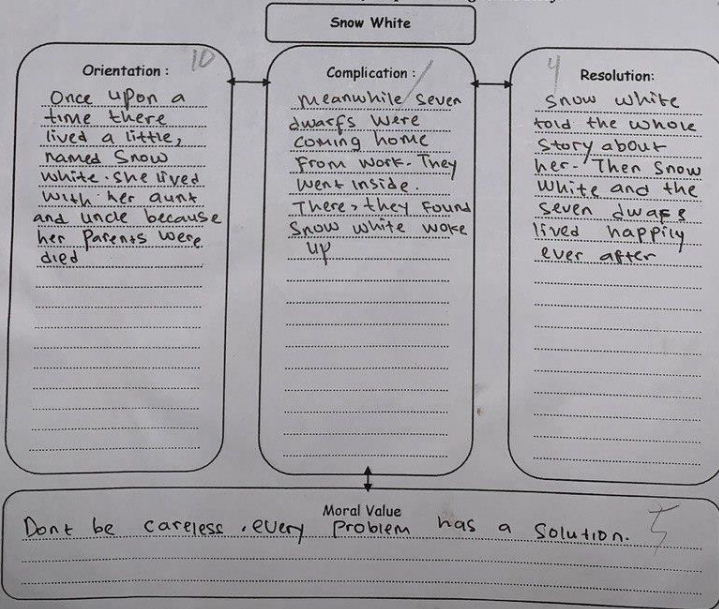 Snow White
Orientation :
10
Once upon a
time there
lived a little,
named Snow
white. she lived
with her aunt
and uncle because
her parents were
died
Complication :
meanwhile seven
dwarfs were
coming home
From work. They
went inside.
There, they Found
Snow white woke
up
Resolution:
4
Snow white
told the whole
story about
her. Then Snow
white and the
seven dwafs
lived happily
ever after
Moral Value
5
Dont be careless. every problem has a solution.